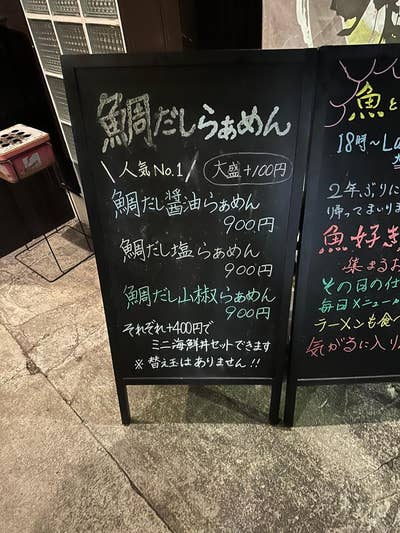 鯛だしらぁめん
\人気No.1/ 大盛+100円
鯛だし醤油らぁめん
900円
鯛だし塩らぁめん
900円
鯛だし山椒らぁめん
900円
それぞれ+400円で
ミニ海鮮丼セットできます
※替え玉はありません!!
魚と
18時〜La
2年ぶりに
帰ってまいり
魚好き
集まるお
その日の仕
毎日メニュー
ラーメンも食べ
気がるに入り